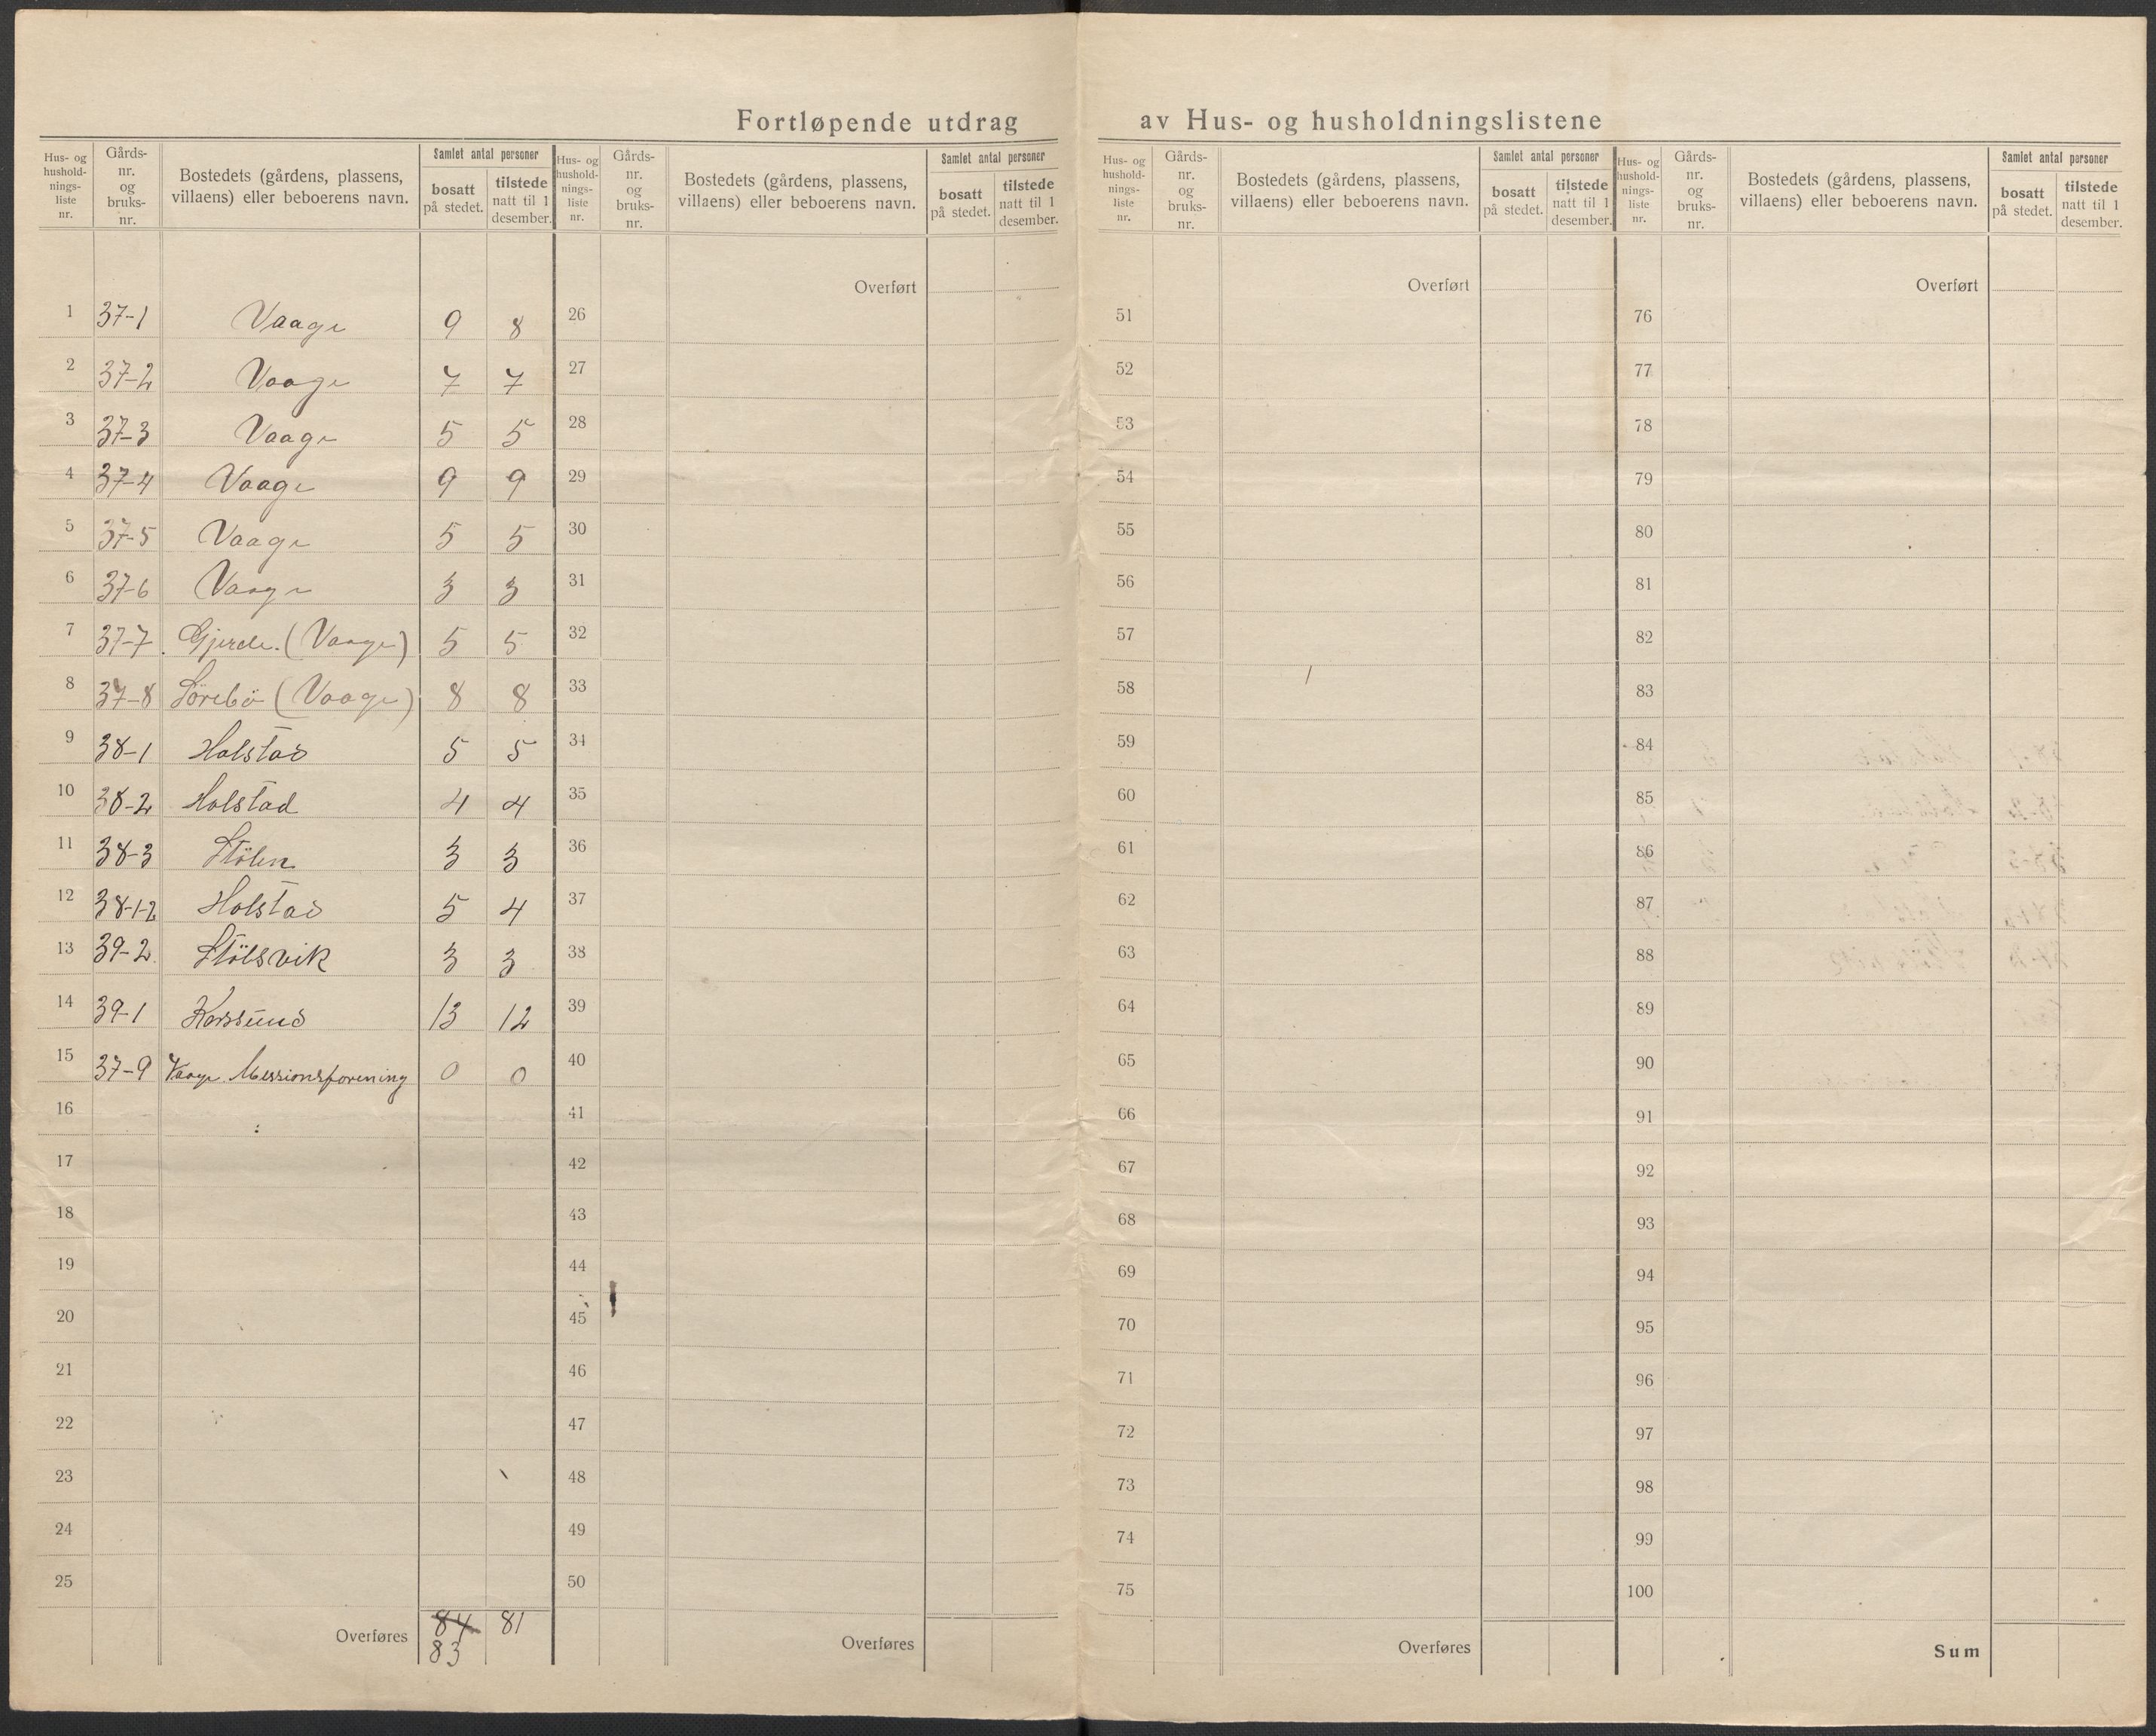 Fortløpende utdrag av Hus- og husholdningslistene
Hus- og husholdningsliste nr. | Gårdsnr. og bruksnr. | Bostedets (gårdens, plassens, villaens) eller beboerens navn. | Samlet antal personer | bosatt på stedet. | tilstede natt til 1 desember.
1 37-1 Vaage 9 8
2 37-2 Vaage 7 7
3 37-3 Vaage 5 5
4 37-4 Vaage 9 9
5 37-5 Vaage 5 5
6 37-6 Vaage 3 3
7 37-7 Gjerde. (Vaage) 5 5
8 37-8 Sörebö (Vaage) 8 8
9 38-1 Holstad 5 5
10 38-2 Holstad 4 4
11 38-3 Stölen 3 3
12 38-1-2 Holstad 5 4
13 39-2 Stölsvik 3 3
14 39-1 Korssund 13 12
15 37-9 Vaage Messionsforening 0 0
16
17
18
19
20
21
22
23
24
25
Overføres 84 81
83
Hus- og husholdningsliste nr. | Gårdsnr. og bruksnr. | Bostedets (gårdens, plassens, villaens) eller beboerens navn. | Samlet antal personer | bosatt på stedet. | tilstede natt til 1 desember.
Overført
26
27
28
29
30
31
32
33
34
35
36
37
38
39
40
41
42
43
44
45
46
47
48
49
50
Overføres
Hus- og husholdningsliste nr. | Gårdsnr. og bruksnr. | Bostedets (gårdens, plassens, villaens) eller beboerens navn. | Samlet antal personer | bosatt på stedet. | tilstede natt til 1 desember.
Overført
51
52
53
54
55
56
57
58
59
60
61
62
63
64
65
66
67
68
69
70
71
72
73
74
75
Overføres
Hus- og husholdningsliste nr. | Gårdsnr. og bruksnr. | Bostedets (gårdens, plassens, villaens) eller beboerens navn. | Samlet antal personer | bosatt på stedet. | tilstede natt til 1 desember.
Overført
76
77
78
79
80
81
82
83
84
85
86
87
88
89
90
91
92
93
94
95
96
97
98
99
100
Sum